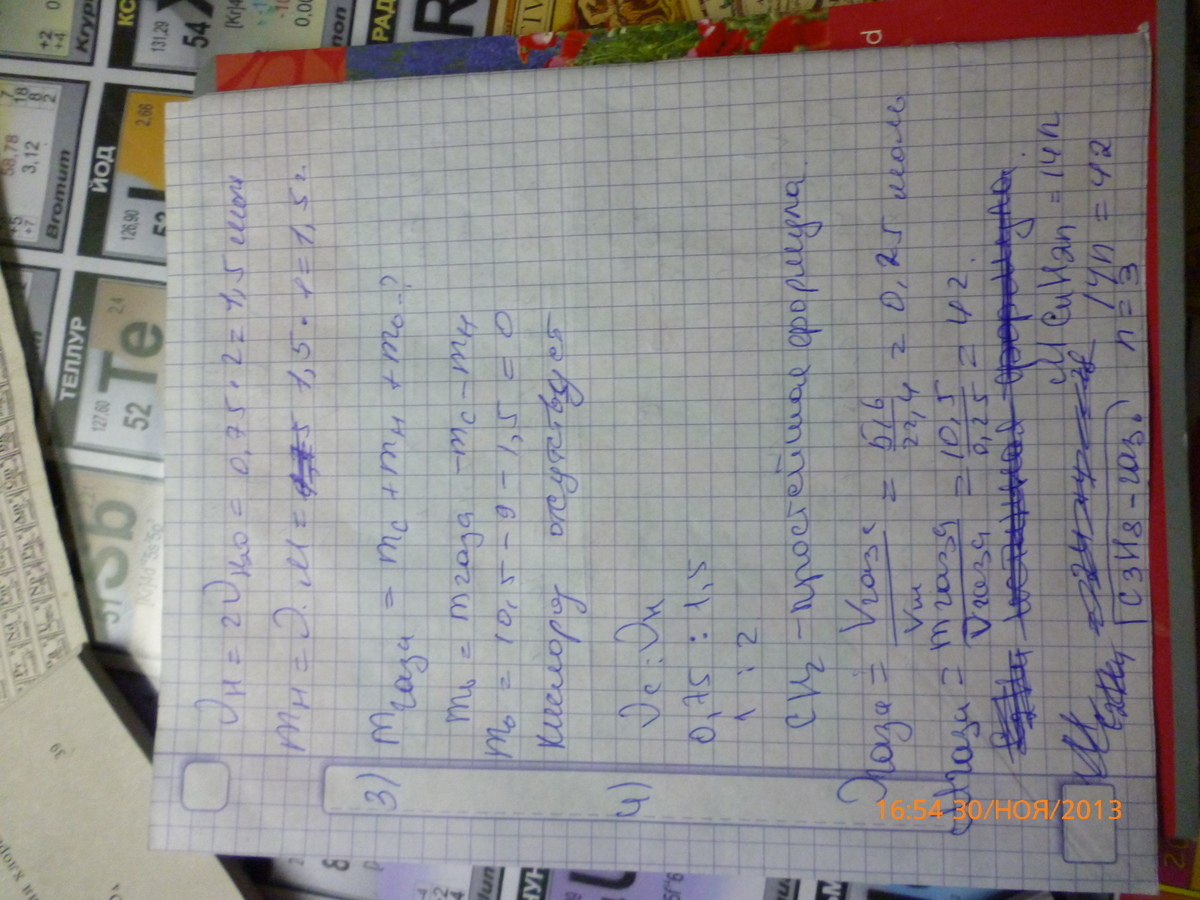 νH = 2νH2O = 0,75 · 2 = 1,5 моль
mH = ν · M = 1,5 · 1 = 1,5 г.
3) mгаза = mC + mH + mO -?
mO = mгаза - mC - mH
mO = 10,5 - 9 - 1,5 = 0
Кислород отсутствует
4) νC : νH
0,75 : 1,5
1 : 2
CH2 - простейшая формула
νгаза = Vгаза / Vm = 5,6 / 22,4 = 0,25 моль
Mгаза = mгаза / νгаза = 10,5 / 0,25 = 42.
M CnH2n = 14n
14n = 42
n = 3
C3H8 - газ
16:54 30/НОЯ/2013
ТЕЛЛУР
127,60
2,4
52 Te
ЙОД
126,90
2,66
53 I
Bromum
3,12
Sb
131,29
54 X